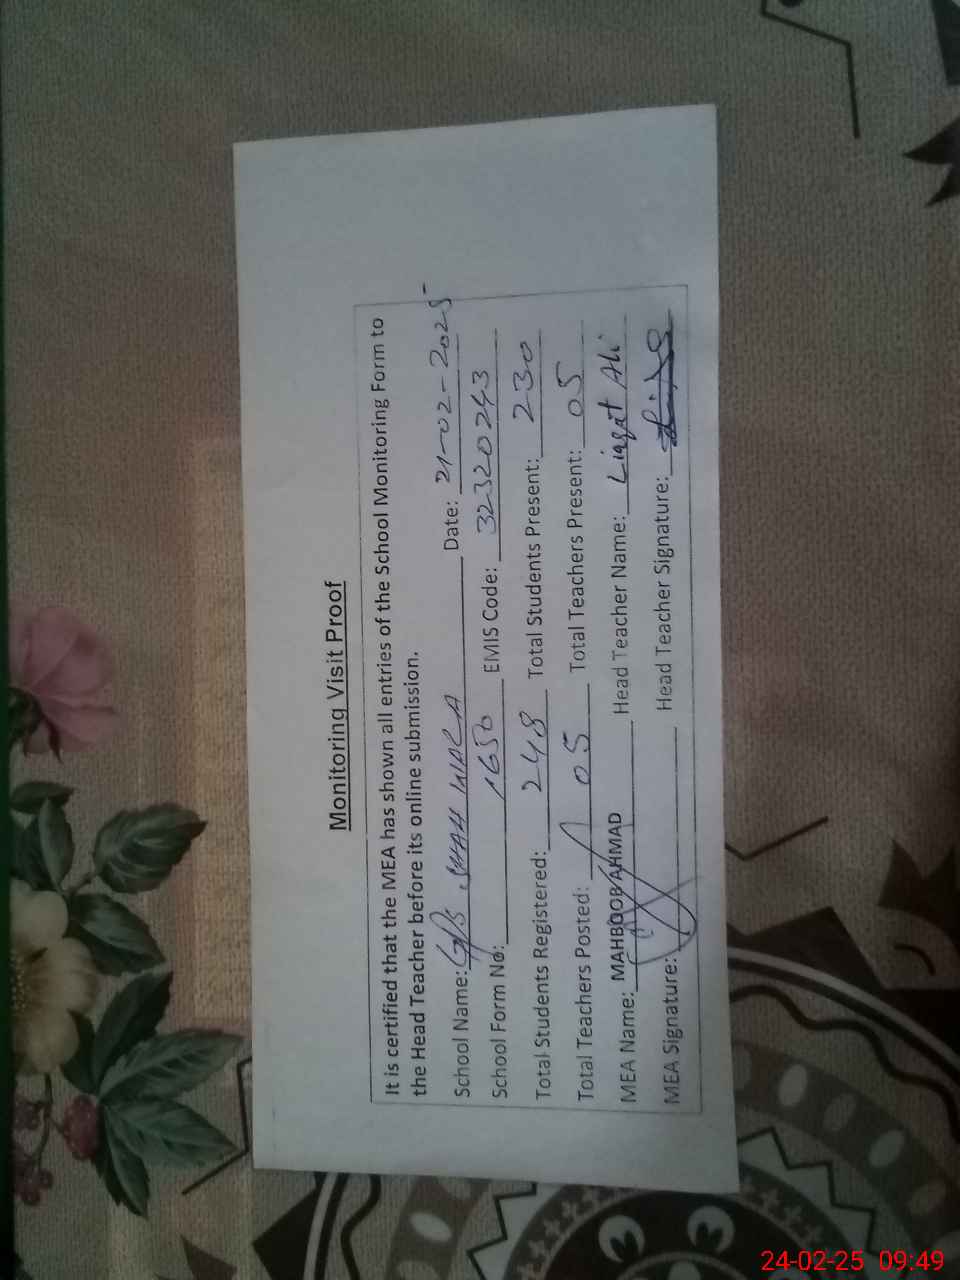 Monitoring Visit Proof
It is certified that the MEA has shown all entries of the School Monitoring Form to
the Head Teacher before its online submission.
School Name: GPS SHAH WALA Date: 21-02-2025
School Form No: 1650 EMIS Code: 32320243
Total Students Registered: 248 Total Students Present: 230
Total Teachers Posted: 05 Total Teachers Present: 05
MEA Name: MAHBOOB AHMAD Head Teacher Name: Liaqat Ali
MEA Signature: Head Teacher Signature:
24-02-25 09:49